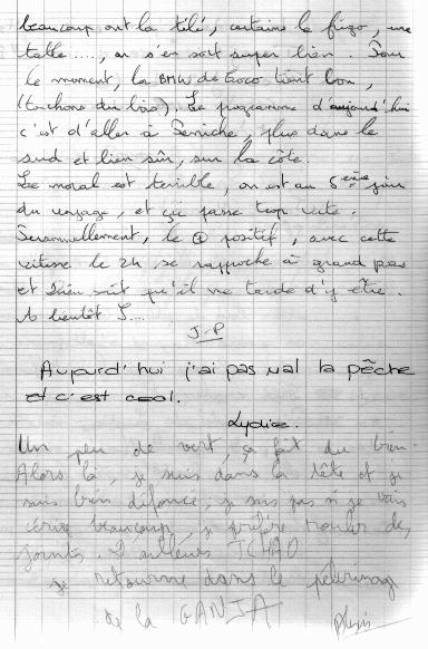 beaucoup ont la télé, certains le frigo, une
table ...., on s'en sort super bien. Pour
le moment, la BMW de Coco tient bon,
(touchons du bois). Le programme d'aujourd'hui
c'est d'aller à Peniche, plus dans le
sud et bien sûr, sur la côte.
Le moral est terrible, on est au 5ème jour
du voyage, et ça passe trop vite.
Personnellement, le positif, avec cette
vitesse le 24 se rapproche à grand pas
et Dieu sait qu'il me tarde d'y être.
A bientôt S...
J-P
Aujourd'hui j'ai pas mal la pêche
et c'est cool.
Lydie.
Un peu de vert, ça fait du bien
Alors là, je suis dans la tête et je
suis bien défoncé, je sais pas si je vais
écrire beaucoup, je préfère rouler des
joints. D'ailleurs TCHAO
je retourne dans le pèlerinage
de la GANJA